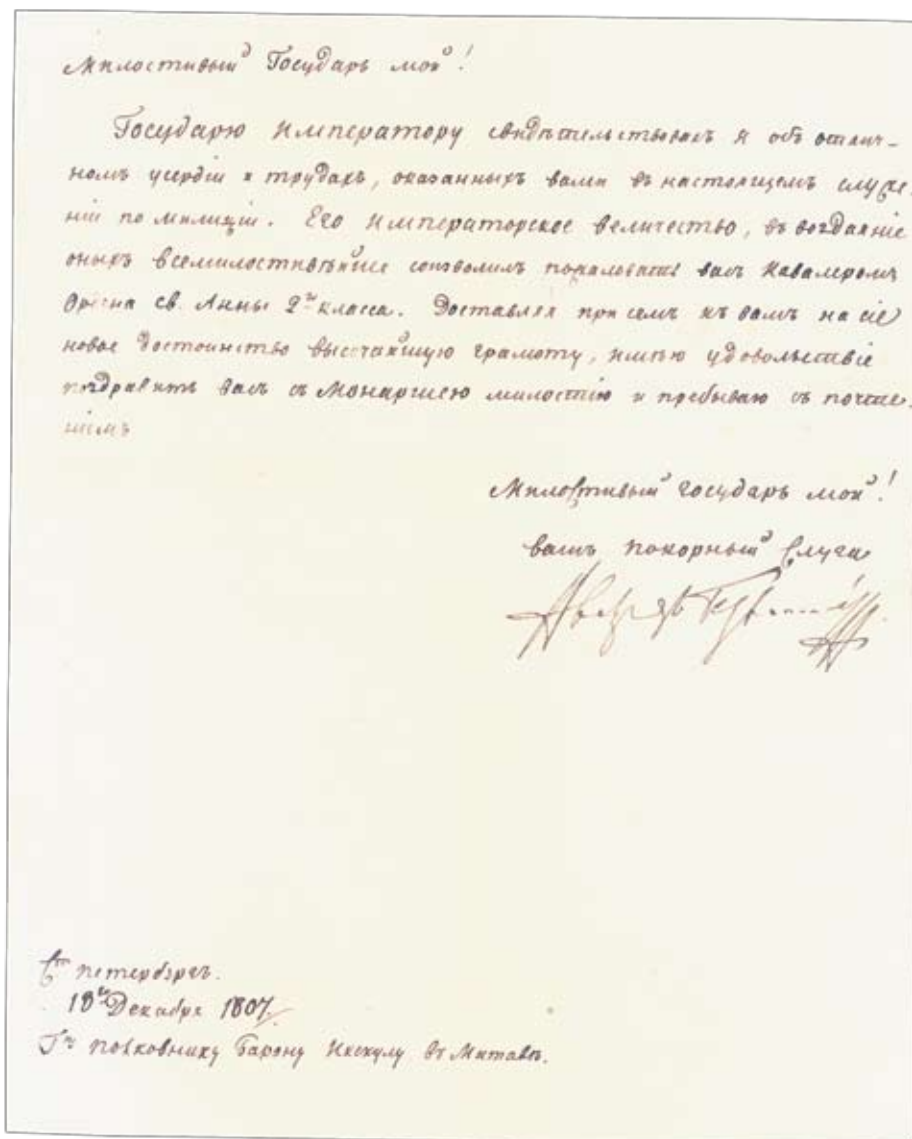 Милостивый Государь мой!
Государю Императору свидѣтельствовалъ я объ отлич-
номъ усердіи и трудахъ, оказанныхъ вами въ настоящемъ служе-
ніи по милиціи. Его Императорское величество, въ воздаяніе
оныхъ всемилостивѣйше соизволилъ пожаловать васъ Кавалеромъ
Ордена св. Анны 2го класса. Доставляя при семъ къ вамъ на сіе
новое достоинство высочайшую грамоту, имѣю удовольствіе
поздравить васъ съ Монаршею милостію и пребываю съ почте-
ніемъ
Милостивый государь мой!
вашъ покорный слуга
Петербургъ.
18го Декабря 1807
Гну полковнику Барону Икскулу въ Митавѣ.